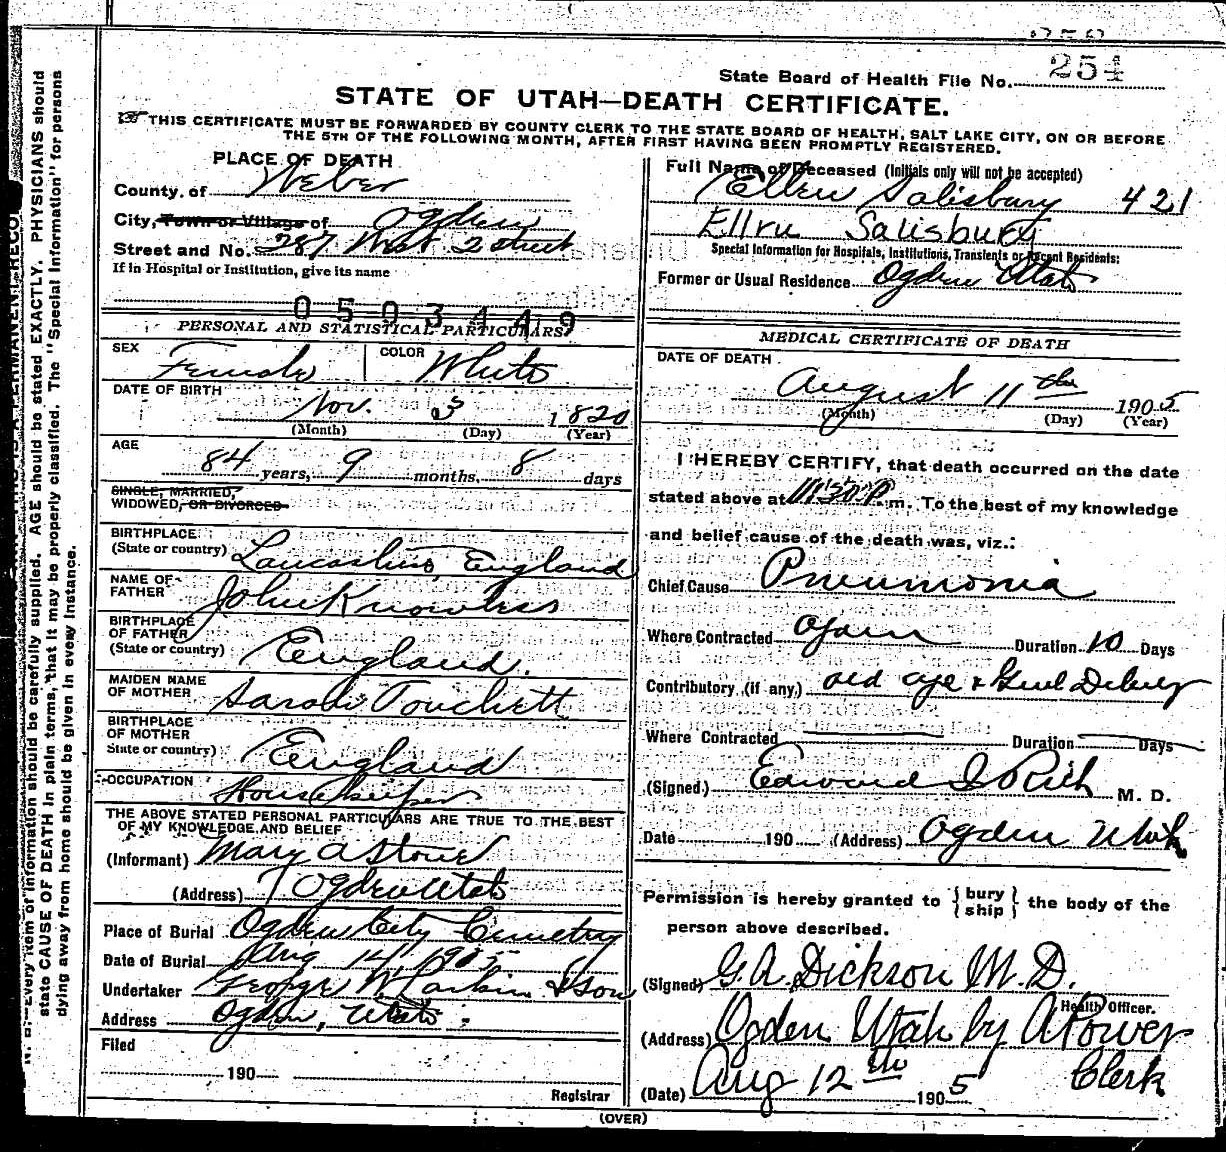 254
State Board of Health File No.
STATE OF UTAH—DEATH CERTIFICATE.
THIS CERTIFICATE MUST BE FORWARDED BY COUNTY CLERK TO THE STATE BOARD OF HEALTH, SALT LAKE CITY, ON OR BEFORE
THE 5TH OF THE FOLLOWING MONTH, AFTER FIRST HAVING BEEN PROMPTLY REGISTERED.
PLACE OF DEATH
County of Weber
City, Town or Village of Ogden
Street and No. 287 West 2 street
If in Hospital or Institution, give its name
0503449
Full Name of Deceased (Initials only will not be accepted)
Ellen Salisbury 421
Ellen Salisbury
Special Information for Hospitals, Institutions, Transients or Recent Residents:
Former or Usual Residence Ogden Utah
PERSONAL AND STATISTICAL PARTICULARS
SEX Female
COLOR White
DATE OF BIRTH
Nov. 3 1820
(Month) (Day) (Year)
AGE
84 years, 9 months, 8 days
SINGLE, MARRIED,
WIDOWED, OR DIVORCED
BIRTHPLACE
(State or country) Lancashire, England
NAME OF
FATHER John Knowless
BIRTHPLACE
OF FATHER
(State or country) England.
MAIDEN NAME
OF MOTHER Sarah Touchett
BIRTHPLACE
OF MOTHER
State or country) England
OCCUPATION Housekeeper
THE ABOVE STATED PERSONAL PARTICULARS ARE TRUE TO THE BEST
OF MY KNOWLEDGE AND BELIEF
(Informant) Mary A Stone
(Address) Ogden Utah
Place of Burial Ogden City Cemetry
Date of Burial Aug 14 1905
Undertaker George W Larkin & Son
Address Ogden, Utah
Filed
190
Registrar
MEDICAL CERTIFICATE OF DEATH
DATE OF DEATH
August 11th 1905
(Month) (Day) (Year)
I HEREBY CERTIFY, that death occurred on the date
stated above at 11:30 P.m. To the best of my knowledge
and belief cause of the death was, viz.:
Chief Cause Pneumonia
Where Contracted Ogden Duration 10 Days
Contributory (if any,) old age & Genl Debility
Where Contracted Duration Days
(Signed.) Edward I Rich M. D.
Date 190 (Address) Ogden Utah
Permission is hereby granted to {bury
ship} the body of the
person above described.
(Signed) G. A. Dickson M. D.
Health Officer.
(Address) Ogden Utah by A Power
Clerk
(Date) Aug 12th 1905
(OVER)
N. B.—Every item of information should be carefully supplied. AGE should be stated EXACTLY. PHYSICIANS should
state CAUSE OF DEATH in plain terms, that it may be properly classified. The "Special Information" for persons
dying away from home should be given in every instance.